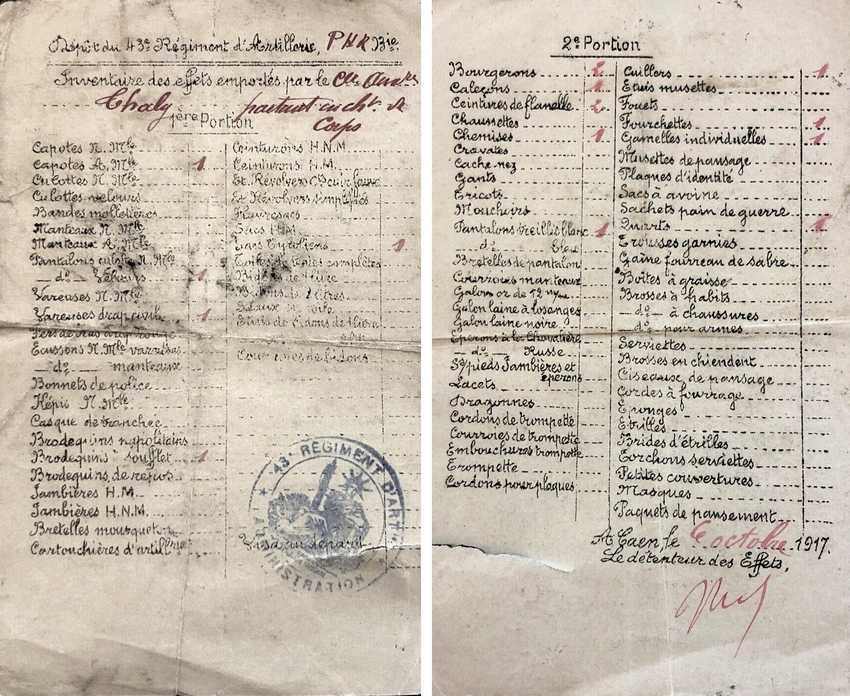 Dépôt du 43e Régiment d'Artillerie, P.H.R. Bie.
Inventaire des effets emportés par le
Chaly partant en de
1ère Portion Corps
Capotes N. Mle
Capotes A. Mle 1
Culottes N. Mle
Culottes velours
Bandes molletières
Manteaux N. Mle
Manteaux A. Mle
Pantalons culotte N. Mle
do Velours 1
Vareuses N. Mle
Vareuses drap civile 1
Ecussons N. Mle vareuses
do manteaux
Bonnets de police
Képis N. Mle
Casque de tranchée
Brodequins napolitains
Brodequins soufflet 1
Brodequins de repos
Jambières H.M.
Jambières H.N.M.
Bretelles mousqueton
Cartouchières d'artillerie
Ceinturons H.N.M.
Ceinturons H.M.
Et. Révolvers
Et. Révolvers simplifiés
Havresacs
Sacs H.M.
Sacs Tyroliens 1
complètes
Bidons de 1 litre
Bidons de 2 litres
Seaux en toile
Etuis de bidons de 1 litre
Courroies de bidons
43e RÉGIMENT D'ARTIE
ADMINISTRATION
Visa au départ
2e Portion
Bourgerons 2
Caleçons 1
Ceintures de flanelle 2
Chaussettes
Chemises 1
Cravates
Cache-nez
Gants
Tricots
Mouchoirs
Pantalons treillis blanc 1
do bleu
Bretelles de pantalon
Courroies manteaux
Galons or de 12 m/m
Galon laine à losanges
Galon laine noire
Eperons à la Chevalière
do Russe
Spieds Jambières et
éperons
Lacets
Dragonnes
Cordons de trompette
Courroies de trompette
Embouchures trompette
Trompette
Cordons pour plaques
Cuillers 1
Etuis musettes
Fouets
Fourchettes 1
Gamelles individuelles 1
Musettes de pansage
Plaques d'identité
Sacs à avoine
Sachets pain de guerre
Quarts 1
Trousses garnies
Gaine fourreau de sabre
Boîtes à graisse
Brosses à habits
do à chaussures
do pour armes
Serviettes
Brosses en chiendent
Ciseaux de pansage
Cordes à fourrage
Eponges
Etrilles
Brides d'étrilles
Torchons serviettes
Petites couvertures
Masques
Paquets de pansement
A Caen, le 6 octobre 1917.
Le détenteur des Effets,